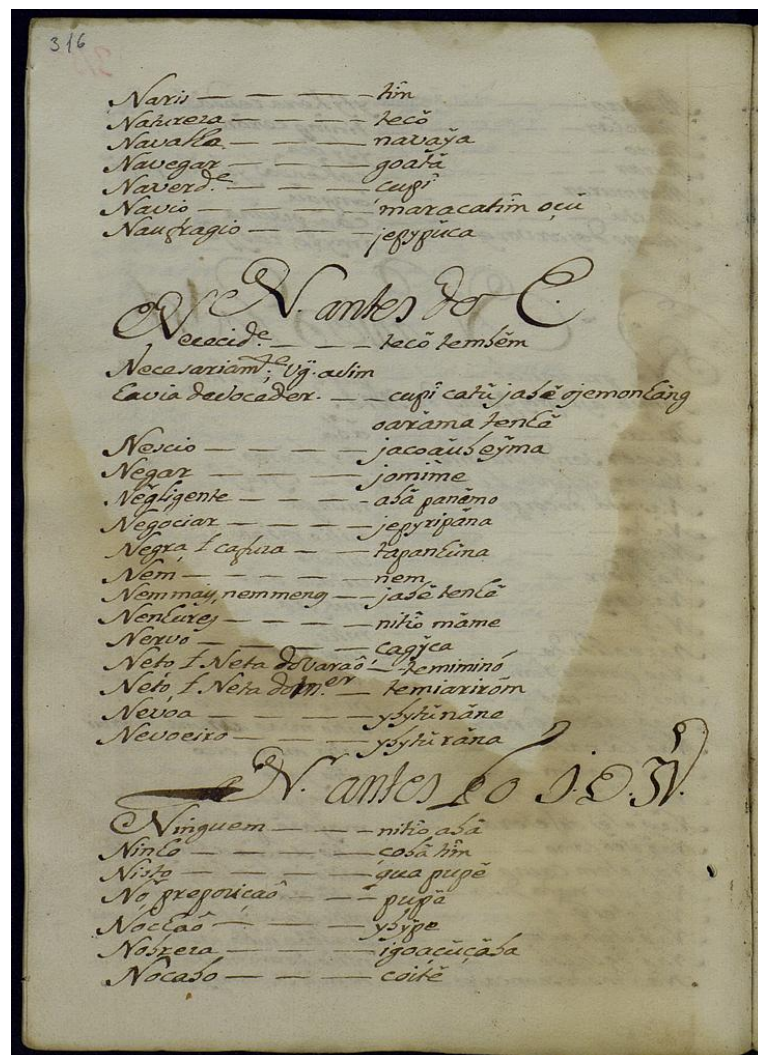 316
Naris — — — — tim̃
Natureza — — — tecõ
Navalha — — — navaỹa
Navegar — — — goatã
Naverd.e — — — cupĩ
Navio — — — maracatim̃ oçũ
Naufragio — — — jepypũca
N. antes do E.
Nececid.e — — — tecõ tembẽm
Necesariam.te;
— — cupĩ catũ jabẽ ojemonhãng
oarãma tenhẽ
Nescio — — — jacoaũbeỹma
Negar — — — jomĩme
Negligente — — — abã panẽmo
Negociar — — — jepyripãna
Negra, ł cafuza — — tapanhũna
Nem — — — — nem
Nem mais, nem menos — — jabẽ tenhẽ
Nenhures — — — nitĩo mãme
Nervo — — — cagỹca
Neto, ł Neta do varaõ — temiminó
Neto, ł Neta da m.er — temiarirõm
Nevoa — — — — ybytũ nãne
Nevoeiro — — — ybytũ rãna
N. antes do I. O. W.
Ninguem — — — nitĩo abã
Ninho — — — —
Nisto — — — — qua pupẽ
No preposiçaõ — — pupẽ
No chaõ — — — ybỹpe
Nobreza — — — igoaçuçãba
No cabo — — — coitẽ